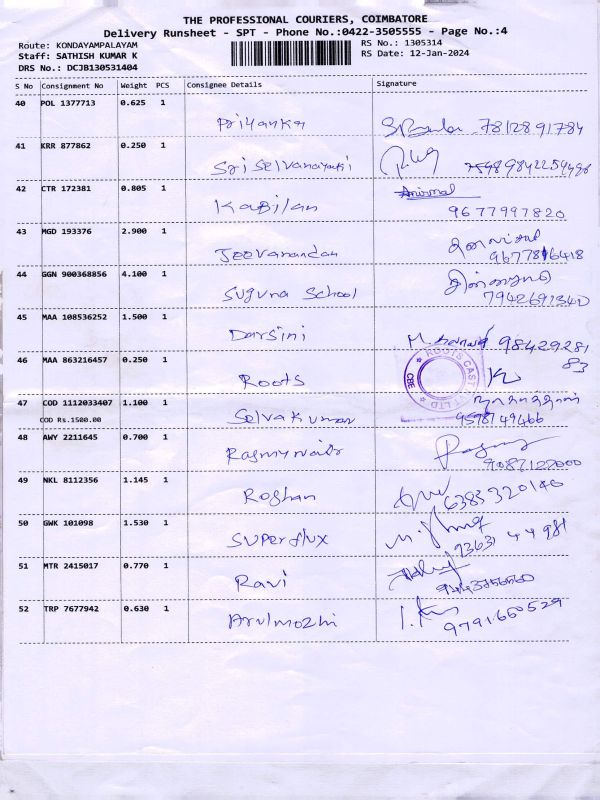 THE PROFESSIONAL COURIERS, COIMBATORE
Delivery Runsheet - SPT - Phone No.:0422-3505555 - Page No.:4
Route: KONDAYAMPALAYAM RS No.: 1305314
Staff: SATHISH KUMAR K RS Date: 12-Jan-2024
DRS No.: DCJB130531404
S No Consignment No Weight PCS Consignee Details Signature
40 POL 1377713 0.625 1
Priyanka 7812891784
41 KRR 877862 0.250 1
Sri Selvanayaki
42 CTR 172381 0.805 1
Kabilan 9677997820
43 MGD 193376 2.900 1
Jeevanandan
44 GGN 900368856 4.100 1
Suguna School 7942691340
45 MAA 108536252 1.500 1
Darsini 98429281
83
46 MAA 863216457 0.250 1
Roots
ROOTS CAST
LTD
CBE
47 COD 1112033407 1.100 1
COD Rs.1500.00 Selvakumar
48 AWY 2211645 0.700 1
9087122000
49 NKL 8112356 1.145 1
Roshan 6383320140
50 GWK 101098 1.530 1
Superflux
51 MTR 2415017 0.770 1
Ravi
52 TRP 7677942 0.630 1
Arulmozhi 9791660529